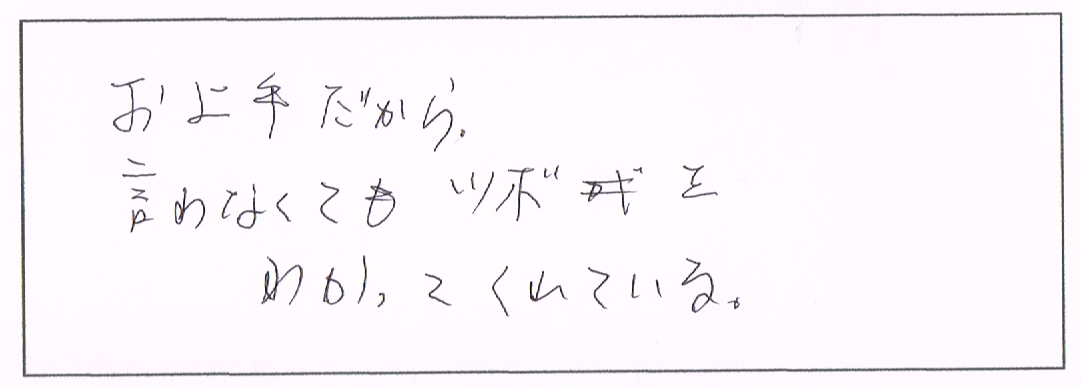 お上手だから、
言わなくてもツボを
わかってくれている。